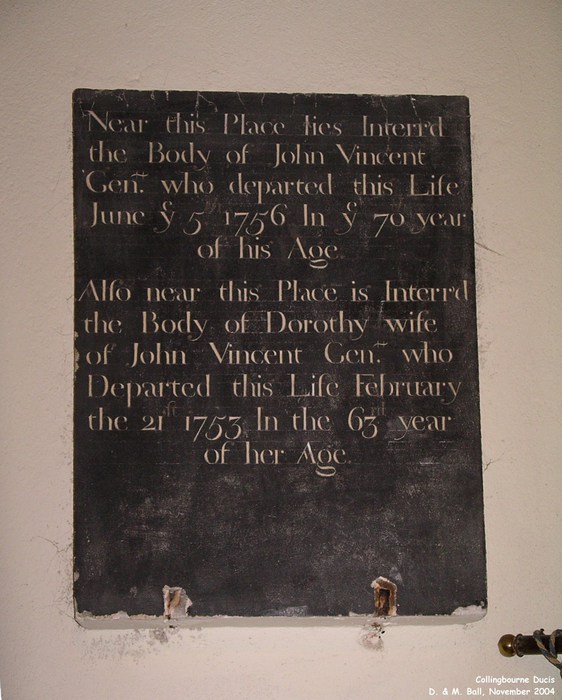 Near this Place lies Interr'd
the Body of John Vincent
Gen.t who departed this Life
June ye 5th 1756 In ye 70 year
of his Age.
Alſo near this Place is Interr'd
the Body of Dorothy wife
of John Vincent Gen.t who
Departed this Life February
the 21st 1753 In the 63rd year
of her Age.
Collingbourne Ducis
D. & M. Ball, November 2004